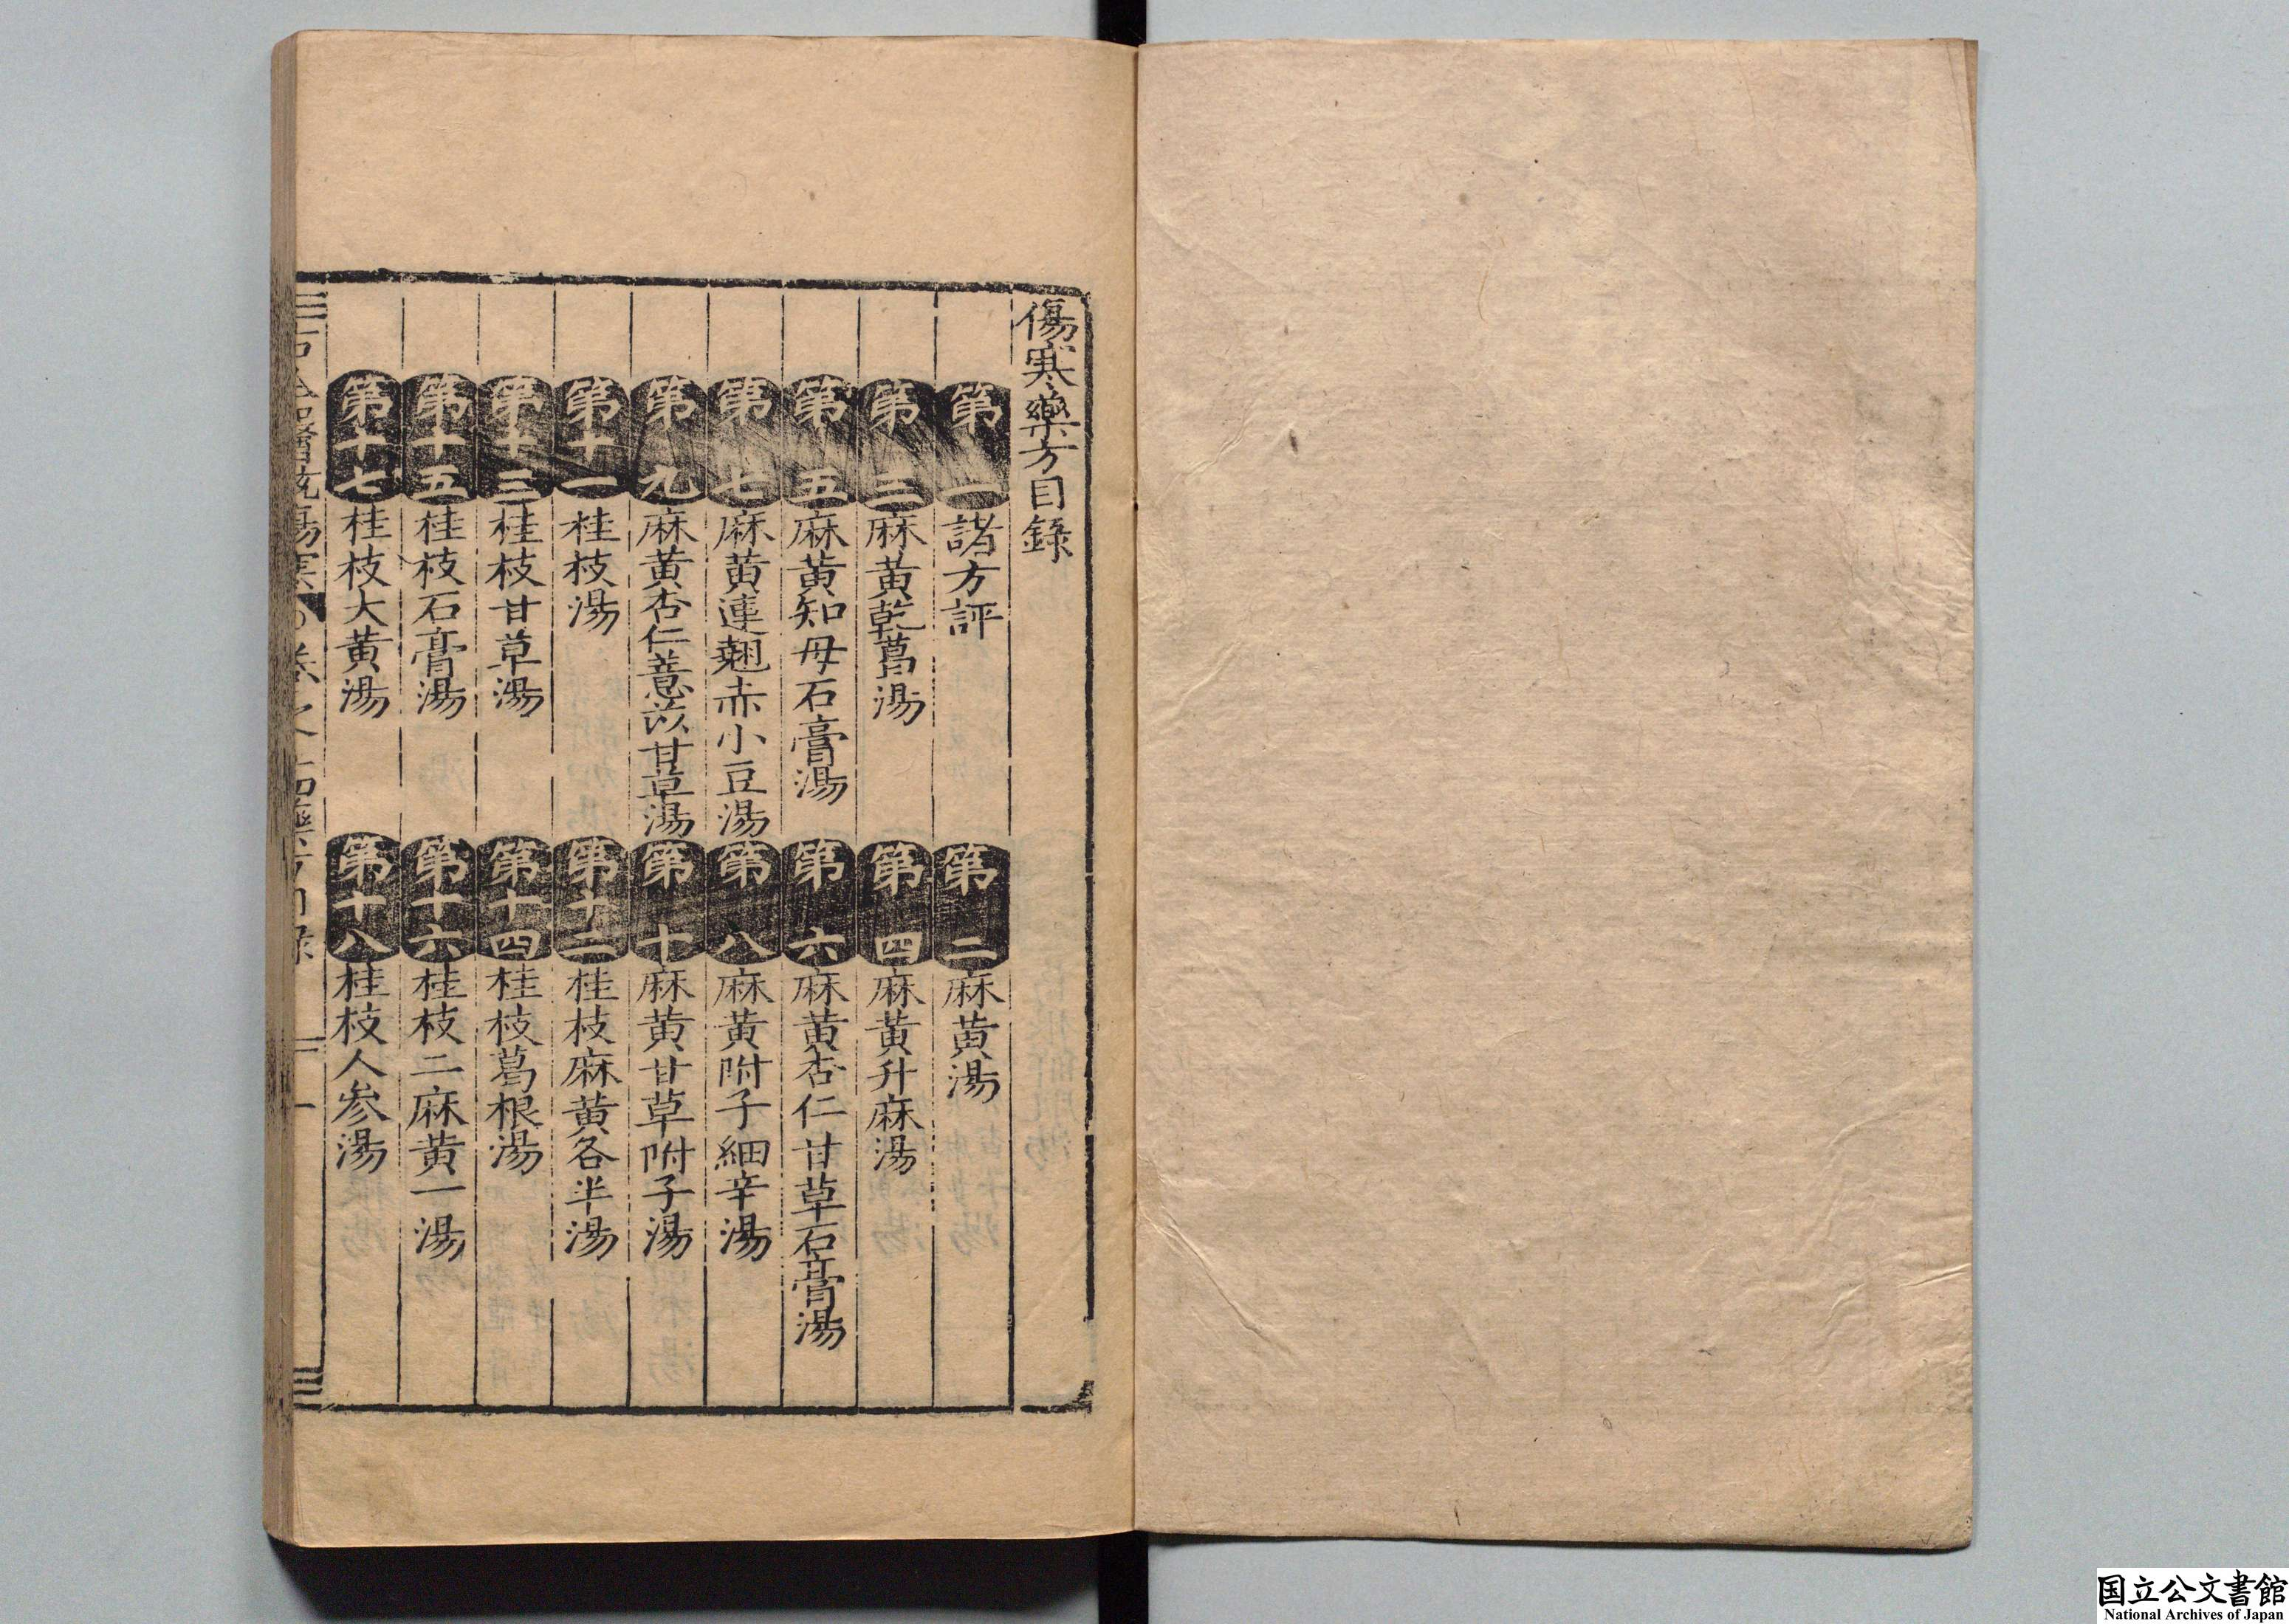 傷寒藥方目錄
第一 諸方評 第二 麻黄湯
第三 麻黄乾葛湯 第四 麻黄升麻湯
第五 麻黄知母石膏湯 第六 麻黄杏仁甘草石膏湯
第七 麻黄連翹赤小豆湯 第八 麻黄附子細辛湯
第九 麻黄杏仁薏苡甘草湯 第十 麻黄甘草附子湯
第十一 桂枝湯 第十二 桂枝麻黄各半湯
第十三 桂枝甘草湯 第十四 桂枝葛根湯
第十五 桂枝石膏湯 第十六 桂枝二麻黄一湯
第十七 桂枝大黄湯 第十八 桂枝人参湯
国立公文書館
National Archives of Japan